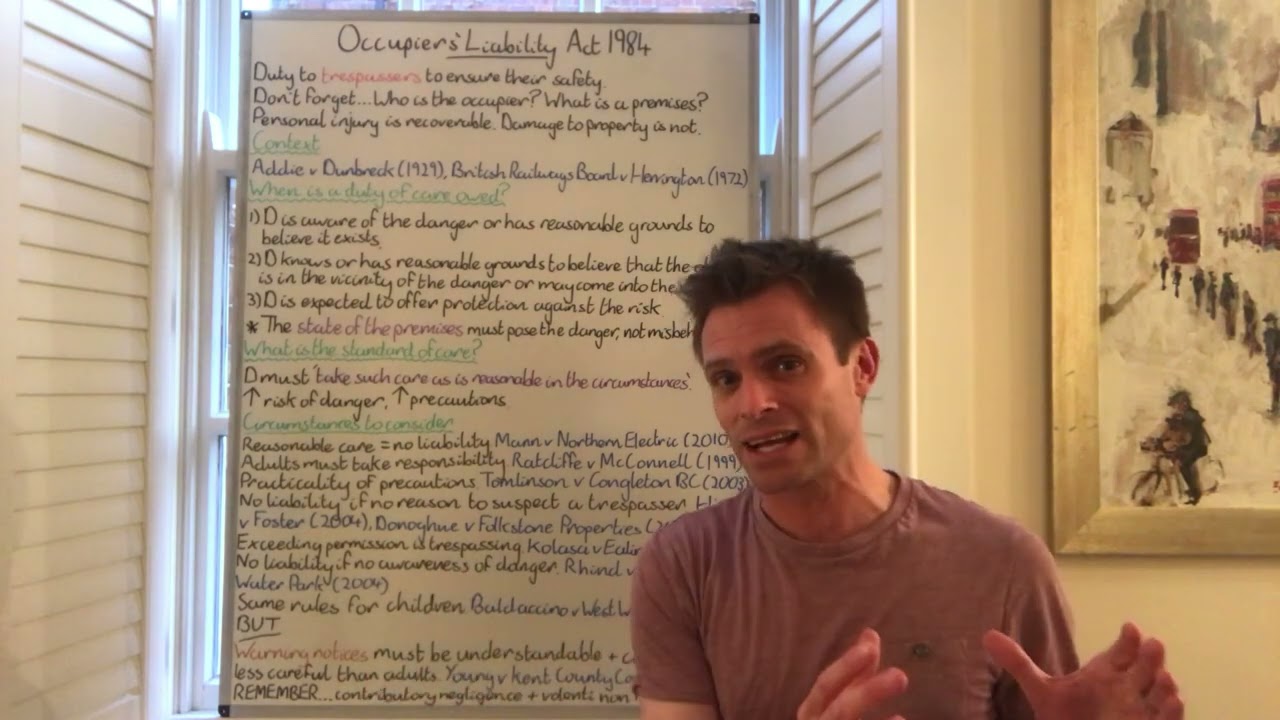 Occupiers' Liability Act 1984
Duty to trespassers to ensure their safety.
Don't forget... Who is the occupier? What is a premises?
Personal injury is recoverable. Damage to property is not.
Context
Addie v Dunbreck (1929), British Railways Board v Herrington (1972)
When is a duty of care owed?
1) D is aware of the danger or has reasonable grounds to
believe it exists
2) D knows or has reasonable grounds to believe that the
is in the vicinity of the danger or may come into the
3) D is expected to offer protection against the risk
* The state of the premises must pose the danger, not
What is the standard of care?
D must 'take such care as is reasonable in the circumstances'.
↑ risk of danger, ↑ precautions
Circumstances to consider
Reasonable care = no liability Mann v Northern Electric (2010
Adults must take responsibility Ratcliffe v McConnell (1999)
Practicality of precautions Tomlinson v Congleton BC (2003)
No liability if no reason to suspect a trespasser
v Foster (2004), Donoghue v Folkstone Properties
Exceeding permission is trespassing. Kolasa v
No liability if no awareness of danger. Rhind v
Water Park (2004)
Same rules for children Baldaccino v West
BUT
Warning notices must be understandable +
less careful than adults. Young v Kent County
REMEMBER... contributory negligence + volenti non